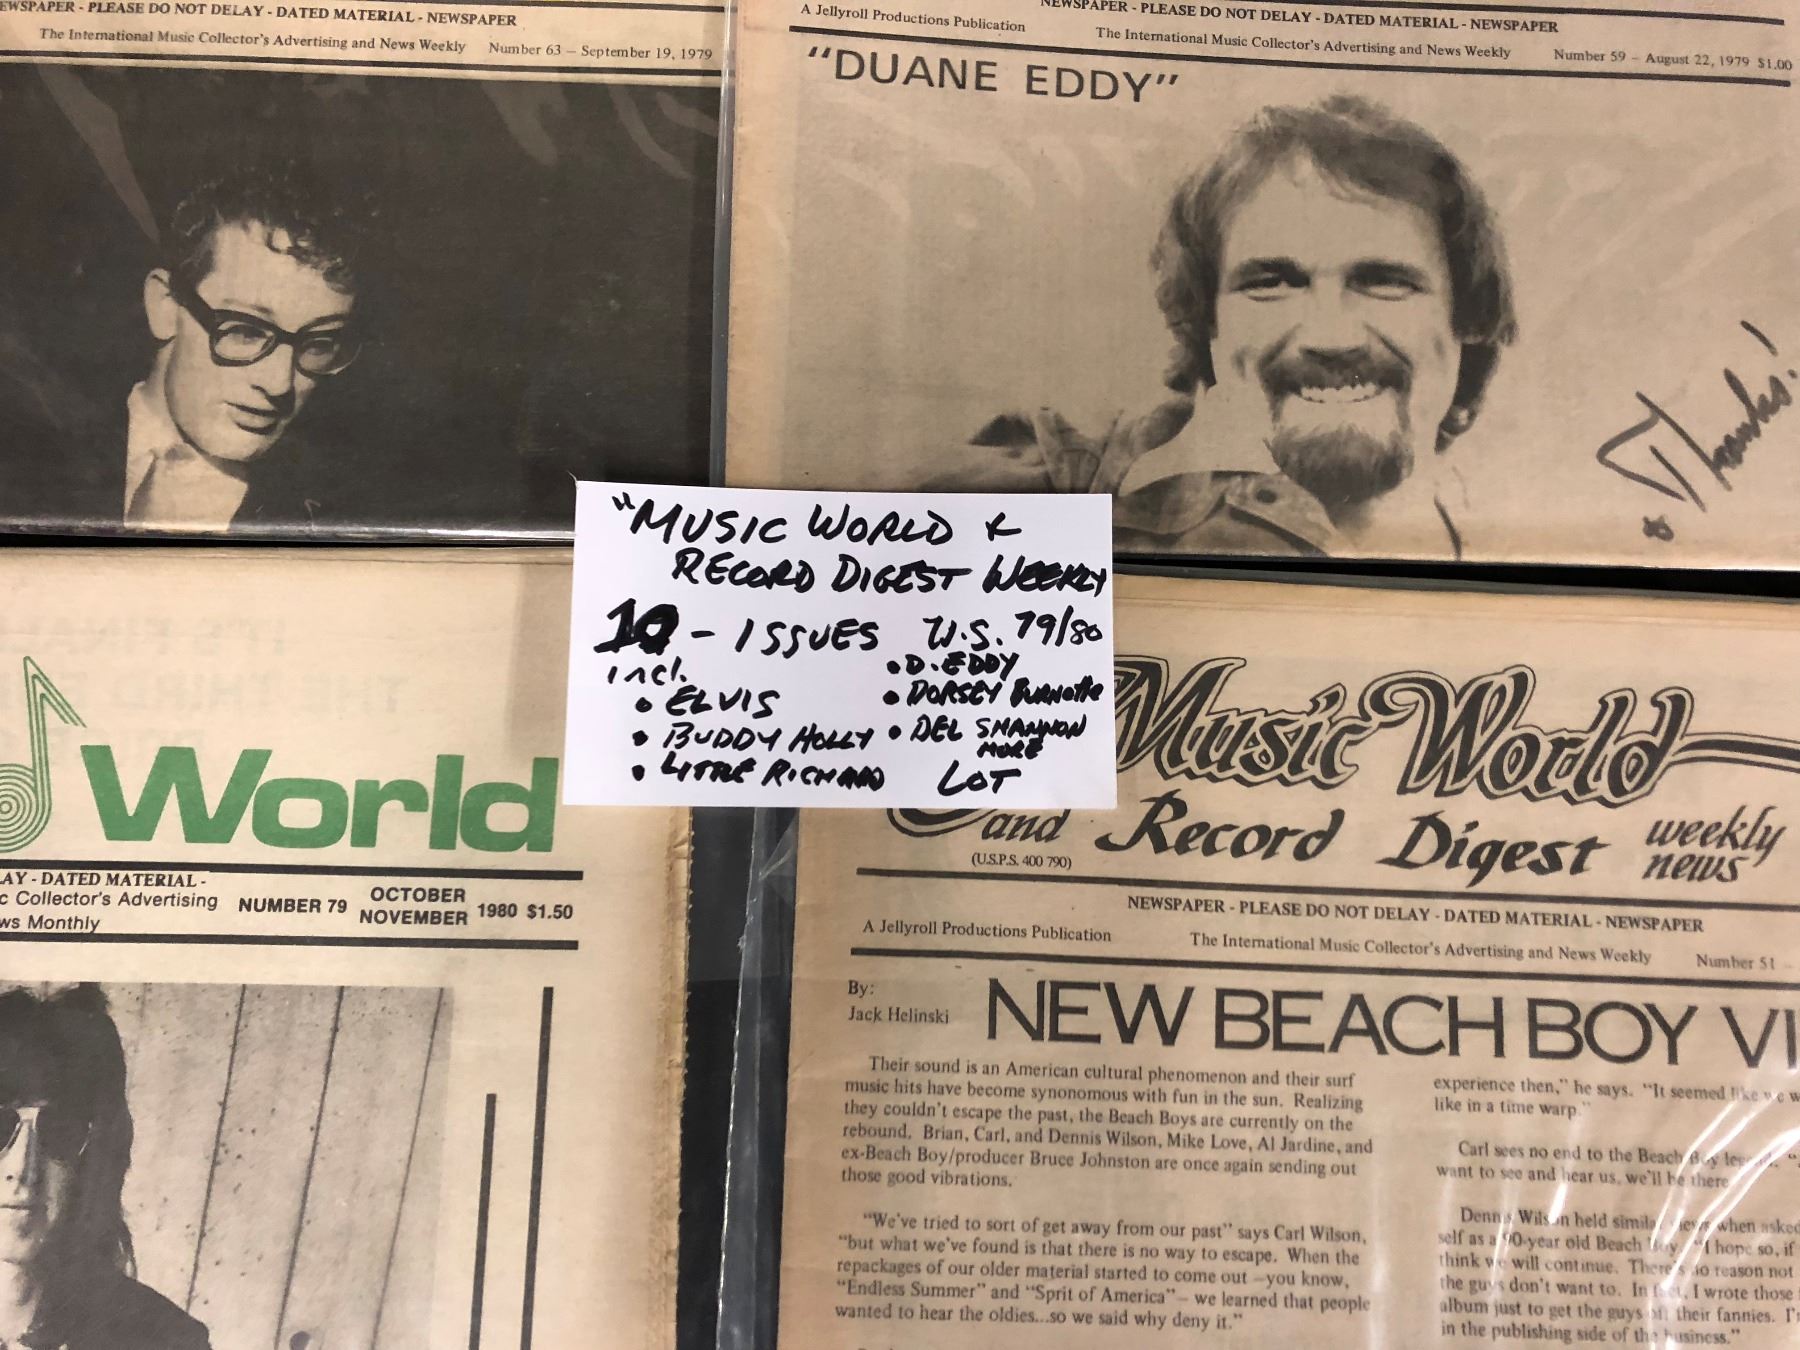 EWSPAPER - PLEASE DO NOT DELAY - DATED MATERIAL - NEWSPAPER
The International Music Collector's Advertising and News Weekly Number 63 — September 19, 1979
NEWSPAPER - PLEASE DO NOT DELAY - DATED MATERIAL - NEWSPAPER
A Jellyroll Productions Publication The International Music Collector's Advertising and News Weekly Number 59 — August 22, 1979 $1.00
"DUANE EDDY"
"Thanks!
"MUSIC WORLD &
RECORD DIGEST WEEKLY
10 - ISSUES U.S. 79/80
incl.
• ELVIS
• BUDDY HOLLY
• LITTLE RICHARD
• D. EDDY
• DORSEY BURNETTE
• DEL SHANNON
MORE
LOT
World
AY - DATED MATERIAL -
c Collector's Advertising
ws Monthly
NUMBER 79 OCTOBER NOVEMBER 1980 $1.50
Music World
and Record Digest weekly news
(U.S.P.S. 400 790)
NEWSPAPER - PLEASE DO NOT DELAY - DATED MATERIAL - NEWSPAPER
A Jellyroll Productions Publication The International Music Collector's Advertising and News Weekly Number 51
By:
Jack Helinski
NEW BEACH BOY VI
Their sound is an American cultural phenomenon and their surf
music hits have become synonomous with fun in the sun. Realizing
they couldn't escape the past, the Beach Boys are currently on the
rebound. Brian, Carl, and Dennis Wilson, Mike Love, Al Jardine, and
ex-Beach Boy/producer Bruce Johnston are once again sending out
those good vibrations.
"We've tried to sort of get away from our past" says Carl Wilson,
"but what we've found is that there is no way to escape. When the
repackages of our older material started to come out —you know,
"Endless Summer" and "Sprit of America"— we learned that people
wanted to hear the oldies...so we said why deny it."
experience then," he says. "It seemed like we w
like in a time warp."
Carl sees no end to the Beach Boy legend.
want to see and hear us, we'll be there
Dennis Wilson held similar views when asked
self as a 90-year old Beach Boy. "I hope so, if
think we will continue. There's no reason not
the guys don't want to. In fact, I wrote those
album just to get the guys off their fannies. I'
in the publishing side of the business."